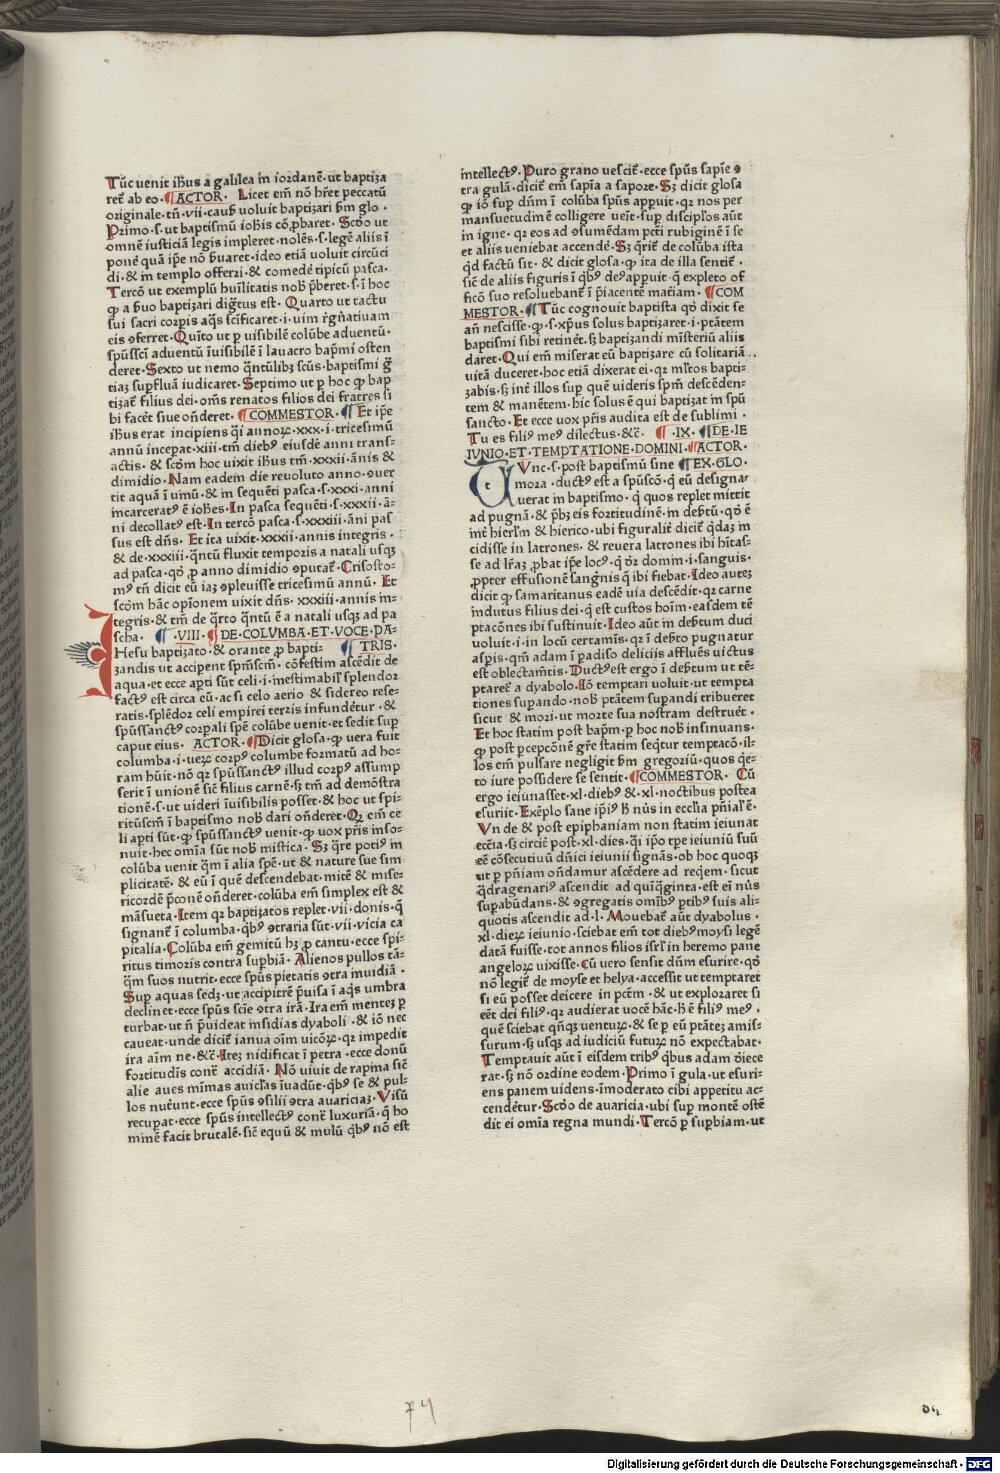 Tūc uenit ihūs a galilea in iordanē·ut baptiza
ret̄ ab eo·¶ACTOR· Licet em̄ nō hr̄et peccatū
originale·tn̄·vii·causꝭ uoluit baptizari ħm glo·
Primo·s·ut baptismū iohīs cōꝓbaret·Scd̄o ut
omnē iusticiā legis impleret·nolēs·s·legē aliis ī
ponē quā ip̄e nō ħuaret·ideo etiā uoluit circūci
di·& in templo offerri·& comedē tipicū pasca·
Tercō ut exemplū huīlitatis nob̄ p̄beret·s·ī hoc
ꝙ a ħuo baptizari dig̃tus est· Quarto ut tactu
sui sacri corpīs aq̄s scīficaret·i·uim
eis ꝯferret·Quīto ut ꝑ uisibilē colūbe aduentū·
spūsscī aduentū īuisibilē ī lauacro bap̄mi osten
deret·Sexto ut nemo q̄ntūlibꝫ scūs·baptismi g̃
tiaꝫ supfluā iudicaret·Septimo ut ꝑ hoc ꝙ bap
tizat̄ filius dei·om̄s renatos filios dei fratres si
bi facēt siue on̄deret·¶COMMESTOR·¶Et ip̄e
ihūs erat incipiens q̄i annoꝝ·xxx·i·tricesimū
annū incepat·xiii·tm̄ diebꝰ eiusdē anni trans=
actis·& scd̄m hoc uixit ihūs tm̄·xxxii·ānis &
dimidio·Nam eadem die reuoluto anno·ꝯuer
tit aquā ī uinū·& in seq̄uēti pasca·s·xxxi·anni
incarceratꝰ ē iohēs·In pasca seq̄uēti·s·xxxii·ā=
ni decollatꝰ est·In tercō pasca·s·xxxiii·āni pas
sus est dn̄s· Et ita uixit·xxxii·annis integris·
& de·xxxiii·q̄ntū fluxit temporis a natali usqꝫ
ad pasca·qd̄ ꝓ anno dimidio ꝯputat̄·Crisosto=
mꝰ tn̄ dicit eū iaꝫ ꝯpleuisse tricesimū annū· Et
scd̄m hāc opīonem uixit dn̄s·xxxiii·annis in=
tegris·& tm̄ de q̄rto q̄ntū ē a natali usqꝫ ad pa
scha· ¶·VIII·¶DE·COLVMBA·ET·VOCE·PA=
IHesu baptizato·& orante ꝓ bapti= ¶TRIS·
zandis ut acciperent spm̄scm̄·cōfestim ascēdit de
aqua·et ecce apti sūt celi·i·inestimabilꝭ splendor
factꝰ est circa eū·ac si celo aerio & sidereo rese=
ratis·splēdor celi empirei terris infundetur·&
spūssanctꝰ corpali spē colūbe uenit·et sedit sup
caput eius· ACTOR·¶Dicit glosa·ꝙ uera fuit
columba·i·ueꝝ corpꝰ columbe formatū ad ho=
ram hūit·nō qꝛ spūssanctꝰ illud corpꝰ assump
serit ī unionē sic̄ filius carnē·sꝫ tm̄ ad demōstra
tionē·s·ut uideri īuisibilis posset·& hoc ut spi=
ritūscm̄ ī baptismo nob̄ dari on̄deret·Qꝛ em̄ ce
li apti sūt·ꝙ spūssanctꝰ uenit·ꝙ uox pr̄is inso=
nuit·hec omīa sūt nob̄ mistica· Sꝫ q̄re potiꝰ in
colūba uenit q̄m ī alia spē·ut & nature sue sim
plicitatē·& eū ī quē descendebat·mitē & mise=
ricordē p̄conē on̄deret·colūba em̄ simplex est &
māsueta·Item qꝛ baptizatos replet·vii·donis·q̄
signant̄ ī columba·qbꝰ ꝯtraria sūt·vii·vicia ca
pitalia·Colūba em̄ gemitū hꝫ ꝓ cantu·ecce spi=
ritus timoris contra supbiā· Alienos pullos tā=
q̄m suos nutrit·ecce spūs pietatis ꝯtra inuidiā·
Sup aquas sedꝫ·ut accipitrē p̄uisa ī aq̄s umbra
declinet·ecce spūs scīe ꝯtra irā·Ira em̄ menteꝫ ꝑ
turbat·ut n̄ p̄uideat insidias dyaboli·& iō nec
caueat·unde dicit̄ ianua oīm uicōꝝ·qꝛ impedit
ira aīm ne·&c̄·Iteꝫ nidificat ī petra·ecce donū
fortitudīs cont̄ accidiā· Nō uiuit de rapina sic̄
alie aues minimas auiculas īuadūt·qbꝰ se & pul=
los nut̄unt·ecce spūs ꝯsilii ꝯtra auariciaꝫ·Visū
recupat·ecce spūs intellectꝰ cont̄ luxuriā·q̄ ho
minē facit brutalē·sic̄ equū & mulū qbꝰ nō est
intellectꝰ·Puro grano uescit̄·ecce spūs sapīe ꝯ
tra gulā·dicit̄ em̄ sapīa a sapore·Sꝫ dicit glosa
ꝙ iō sup dn̄m ī colūba spūs appuit·qꝛ nos per
mansuetudinē colligere ueīt·sup discip̄los aūt
in igne·qꝛ eos ad ꝯsumēdam pctī rubiginē ī se
et aliis ueniebat accendē·Sꝫ q̄rit̄ de colūba ista
qd̄ factū sit·& dicit glosa·ꝙ ita de illa sentit̄·
sic̄ de aliis figuris ī qbꝰ deꝰ appuit·q̄ expleto of
ficō suo resoluebant̄ ī p̄iacentē mat̄iam·¶COM
MESTOR·¶Tūc cognouit baptista qd̄ dixit se
an̄ nescisse·ꝙ·s·xp̄us solus baptizaret·i·ptātem
baptismi sibi retinet·sꝫ baptizandi mīsteriū aliis
daret·Qui em̄ miserat eū baptizare cū solitariā
uitā duceret·hoc etiā dixerat ei·qꝛ ml̄tos bapti=
zabis·sꝫ int̄ illos sup quē uideris spm̄ descēden=
tem & manētem·hic solus ē qui baptizat in spū
sancto·Et ecce uox pr̄is audita est de sublimi·
Tu es filiꝰ meꝰ dilectus·&c̄· ¶·IX·¶DE·IE
IVNIO·ET·TEMPTATIONE·DOMINI·¶ACTOR·
TVnc·s·post baptismū sine ¶EX·GLO·
mora·ductꝰ est a spūscō·q̄ eū designa=
uerat in baptismo·q̄ quos replet mittit
ad pugnā·& p̄bꝫ eis fortitudinē·in deꝑtū·qd̄ ē
int̄ hierl̄m & hierico·ubi figuralit̄ dicit̄ q̄daꝫ in
cidisse in latrones·& reuera latrones ibi hītas=
se ad lr̄aꝫ ꝓbat ip̄e locꝰ·q̄ dr̄ domin·i·sanguis·
ꝓpter effusionē sang̃nis q̄ ibi fiebat·Ideo auteꝫ
dicit̄ ꝙ samaritanus eadē uia descēdit·qꝛ carne
indutus filius dei·q̄ est custos hoīm·easdem tē
ptacōnes ibi sustinuit·Ideo aūt in deꝑtum duci
uoluit·i·in locū certamīs·qꝛ ī deꝑto pugnatur
aspīs·qm̄ adam ī padiso deliciis afflues uictus
est oblectamtīs·Ductꝰ est ergo ī deꝑtum ut tē=
ptaret̄ a dyabolo·Iō temptari uoluit·ut tempta
tiones supando·nob̄ ptātem supandi tribueret
sicut & mori·ut morte sua nostram destruet̄·
Et hoc statim post bap̄m·ꝑ hoc nob̄ insinuans·
ꝙ post pcepcōnē gr̄e statim seq̄tur temptacō·il=
los em̄ pulsare negligit ħm gregoriū·quos q̄e=
to iure possidere se sentit·¶COMMESTOR· Cū
ergo ieiunasset·xl·diebꝰ & ·xl·noctibus postea
esuriit·Exēplo sane ip̄iꝰ ħ nūs in ecclīa pn̄ialꝭ ē·
Vn de & post epiphaniam non statim ieiunat
ecc̄ia·sꝫ circit̄ post·xl·dies·q̄i ip̄o tpe ieiuniū suū
eē cōsecutiuū dn̄ici ieiunii signās·ob hoc quoqꝫ
ut ꝑ pn̄iam on̄damur ascēdere ad req̄em·sicut
q̄dragenariꝰ ascendit ad quīq̄ginta·est eī nūs
supabūdans·& ꝯgregatis omībꝰ ptibꝰ suis ali=
quotis ascendit ad·l· Mouebat̄ aūt dyabolus·
xl·dieꝝ ieiunio·sciebat em̄ tot diebꝰ moysi legē
datā fuisse·tot annos filios isrl̄ in heremo pane
angeloꝝ uixisse·Cū uero sensit dn̄m esurire·qd̄
nō legit̄ de moyse et helya·accessit ut temptaret
si eū posset deicere in pctm̄·& ut exploraret si
eēt dei filiꝰ·qꝛ audierat uocē hāc·ħ ē filiꝰ meꝰ·
quē sciebat q̄nqꝫ uentuꝝ·& se ꝑ eū ptāteꝫ amis=
surum·sꝫ usqꝫ ad iudiciū futuꝝ nō expectabat·
Temptauit aūt ī eisdem tribꝰ qbus adam deiece
rat·sꝫ nō ordine eodem·Primo ī gula·ut esuri=
ens panem uidens·īmoderato cibi appetitu ac=
cendetur·Scd̄o de auaricia·ubi sup montē ostē
dit ei omīa regna mundi·Tercō ꝑ supbiam·ut
74
Digitalisierung gefördert durch die Deutsche Forschungsgemeinschaft - DFG